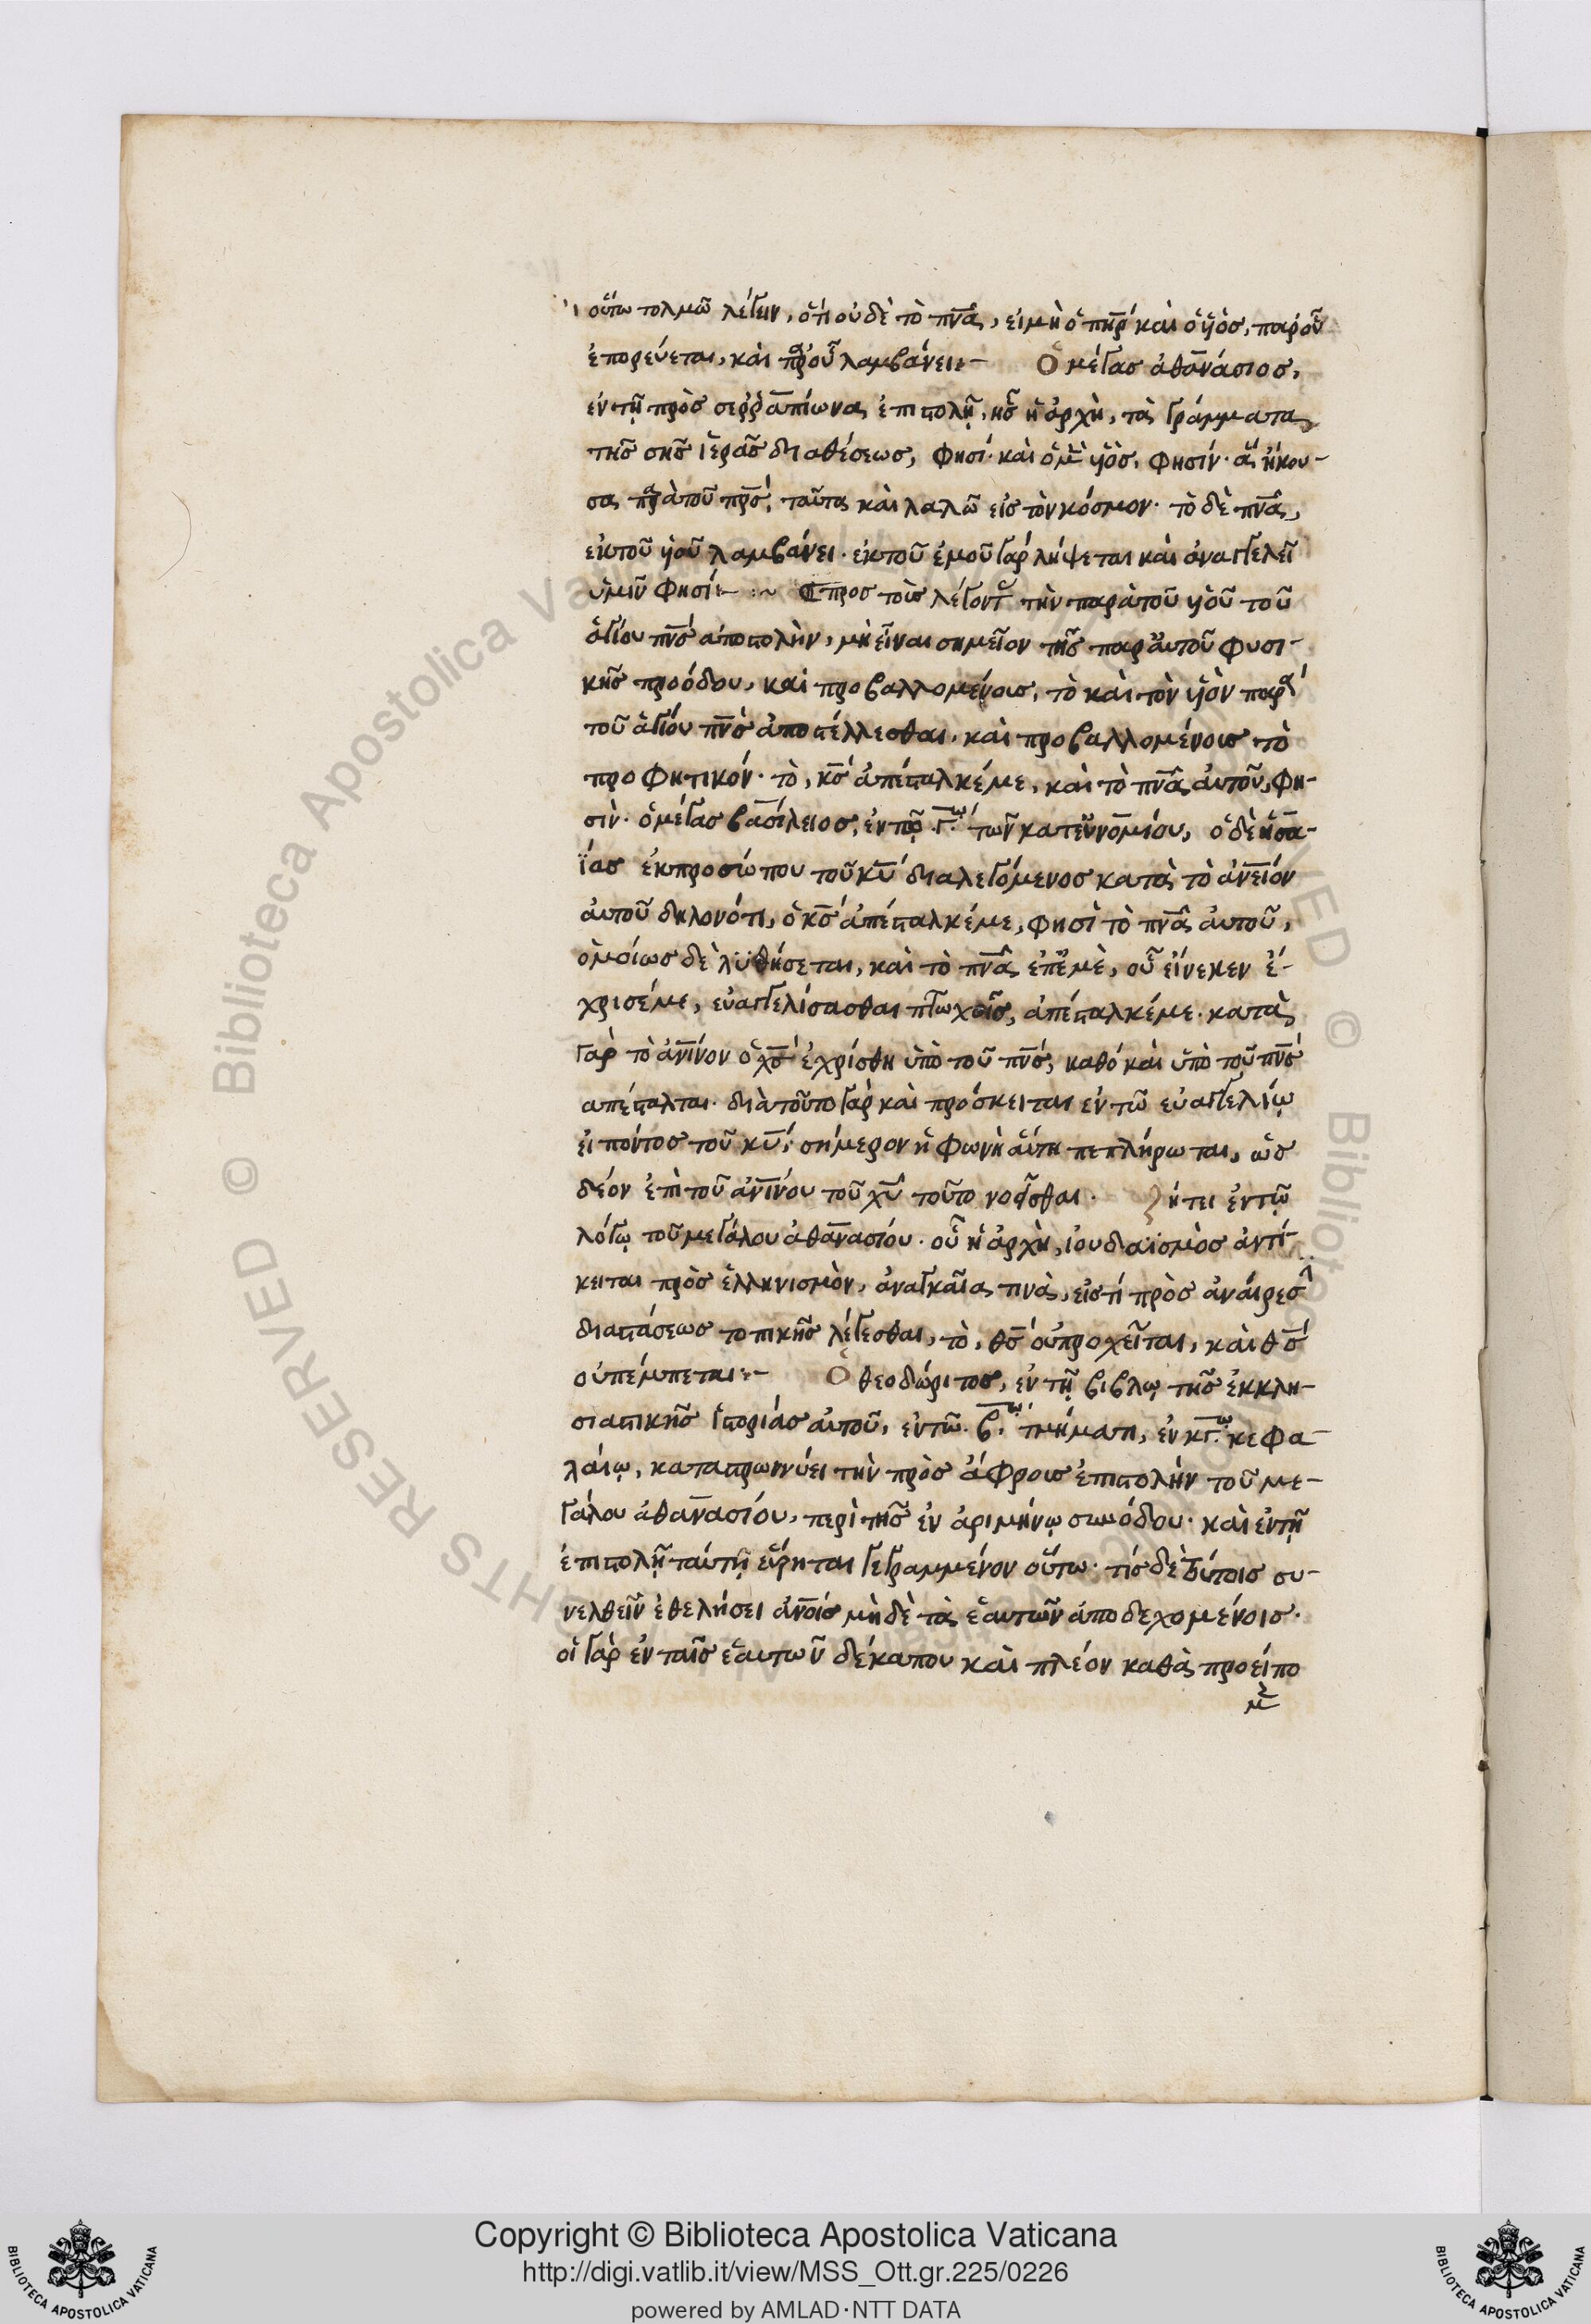 οὕτω τολμῶ λέγειν, ὅτι οὐδὲ τὸ πνᾶ, εἰμὴ ὁ πηρ καὶ ὁ ὑὸσ, παρ οὗ
ἐπορεύεται, καὶ παρ οὗ λαμβάνει:- Ὁ μέγασ ἀθανάσιοσ,
ἐν τῆ πρὸσ σερραπίωνα ἐπιστολῆ, ἧσ ἡ ἀρχὴ, τὰ γράμματα
τῆσ σῆσ ἱερᾶσ διαθέσεωσ, φησί· καὶ ὁ μὲν ὑὸσ, φησίν· ἃ ἤκου-
σα παρὰ τοῦ πρσ, ταῦτα καὶ λαλῶ εἰσ τὸν κόσμον· τὸ δὲ πνα,
ἐκ τοῦ ὑοῦ λαμβάνει· ἐκ τοῦ ἐμοῦ γὰρ λήψεται καὶ ἀναγγελεῖ
ὑμῖν φησί:- :~ προσ τοὺσ λέγοντ τὴν παρὰ τοῦ ὑοῦ τοῦ
ἁγίου πνσ ἀποστολὴν, μὴ εἶναι σημεῖον τῆσ παρ αὐτοῦ φυσι-
κῆσ προόδου, καὶ προβαλλομένουσ, τὸ καὶ τὸν ὑὸν παρὰ
τοῦ ἁγίου πνσ ἀποστέλλεσθαι, καὶ προβαλλομένουσ τὸ
προφητικόν· τὸ, κσ ἀπέσταλκέ με, καὶ τὸ πνα αὐτοῦ, φη-
σὶν· ὁ μέγασ βασίλειοσ, ἐν τῶ γω τῶν κατ εὐνομίου, ὁ δὲ ἡσα-
ΐασ ἐκ προσώπου τοῦ κυ διαλεγόμενοσ κατὰ τὸ ἀνειον
αὐτοῦ δηλονότι, ὁ κσ ἀπέσταλκέ με, φησὶ τὸ πνα αὐτοῦ,
ὁμοίωσ δὲ λυθήσεται, καὶ τὸ πνα ἐπ ἐμὲ, οὗ εἵνεκεν ἔ-
χρισέ με, εὐαγγελίσασθαι πτωχοῖσ, ἀπέσταλκέ με· κατὰ
γὰρ τὸ ἀνινον ὁ χσ ἐχρίσθη ὑπὸ τοῦ πνσ, καθὸ καὶ ὑπὸ τοῦ πνσ
απέσταλται· διὰ τοῦτο γὰρ καὶ πρόσκειται ἐν τῶ εὐαγγελίω
εἰπόντοσ τοῦ κυ, σήμερον ἡ φωνὴ αὕτη πεπλήρωται, ὡσ
δέον ἐπὶ τοῦ ἀνινου τοῦ χυ τοῦτο νοεῖσθαι· ζήτει ἐν τῶ
λόγω τοῦ μεγάλου ἀθανασίου· οὗ ἡ ἀρχὴ, ἰουδαϊσμὸσ ἀντί-
κειται πρὸσ ἑλληνισμὸν, ἀναγκαῖα τινὰ, εἰσ τὴ πρὸσ ἀναίρεσ
διαστάσεωσ τοπικῆσ λέγεσθαι, τὸ, θσ οὐ προχεῖται, καὶ θσ
οὐ πέμπεται:- Ὁ θεοδώριτοσ, ἐν τῆ βιβλω τῆσ ἐκκλη-
σιαστικῆσ ἱστοριάσ αὐτοῦ, ἐν τῶ βω τμήματι, ἐν κγω κεφα-
λάιω, καταστρωννύει τὴν πρὸσ ἄφρουσ ἐπιστολὴν τοῦ με-
γάλου ἀθανασίου, περὶ τῆσ ἐν ἀριμήνω συνόδου· καὶ ἐν τῆ
ἐπιστολῆ ταύτη εὕρηται γεγραμμένον οὕτω· τίσ δὲ τούτοισ συ-
νελθεῖν ἐθελήσει ἀνοισ μὴ δὲ τὰ ἑαυτῶν ἀποδεχομένοισ·
οἱ γὰρ ἐν ταῖσ ἑαυτῶν δέκα που καὶ πλέον καθὰ προείπο
μ
Copyright © Biblioteca Apostolica Vaticana
http://digi.vatlib.it/view/MSS_Ott.gr.225/0226
powered by AMLAD·NTT DATA